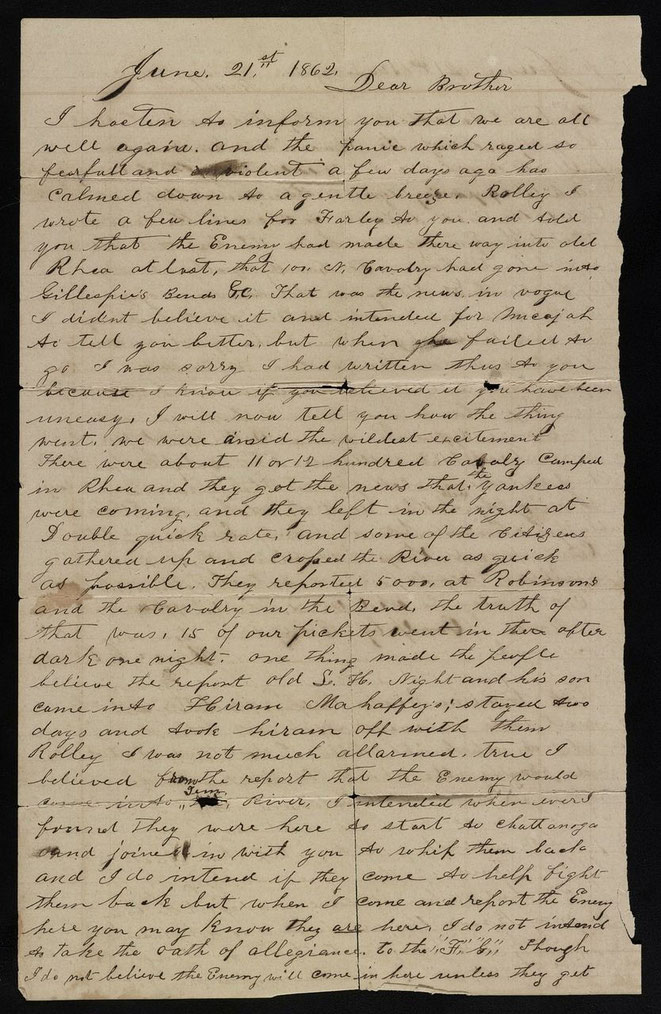 June. 21.st 1862.
Dear Brother
I hasten to inform you that we are all
well again. and the panic which raged so
fearfull and violent a few days ago has
calmed down to a gentle breeze. Rolley I
wrote a few lines for Farley to you and told
you that the Enemy had made there way into old
Rhea at last, that 100. N. Cavalry had gone into
Gillespie's Bends &C. That was the news in vogue
I didnt believe it and intended for Micajah
to tell you better, but when he failed to
go I was sorry I had written thus to you
because I know if you recieved it you have been
uneasy. I will now tell you how the thing
went. we were amid the wildest excitement
There were about 11 or 12 hundred Cavalry Camped
in Rhea and they got the news that the Yankees
were coming, and they left in the night at
Double quick rate, and some of the Citizens
gathered up and crossed the River as quick
as possible. They reported 5000, at Robinsons
and the Cavalry in the Bend, the truth of
that was, 15 of our pickets went in there after
dark one night. one thing made the people
believe the report old S. H. Night and his son
came into Hiram Mahaffey's; stayed two
days and took hiram off with them
Rolley I was not much allarmed. true I
believed from the report that the Enemy would
come into Tenn River, I intended when ever I
found they were here to start to Chattanoga
and joined in with you to whip them back
and I do intend if they come to help fight
them back but when I come and report the Enemy
here you may know they are here. I do not intend
to take the oath of allegiance to the "F" C," Though
I do not believe the Enemy will come in here unless they get